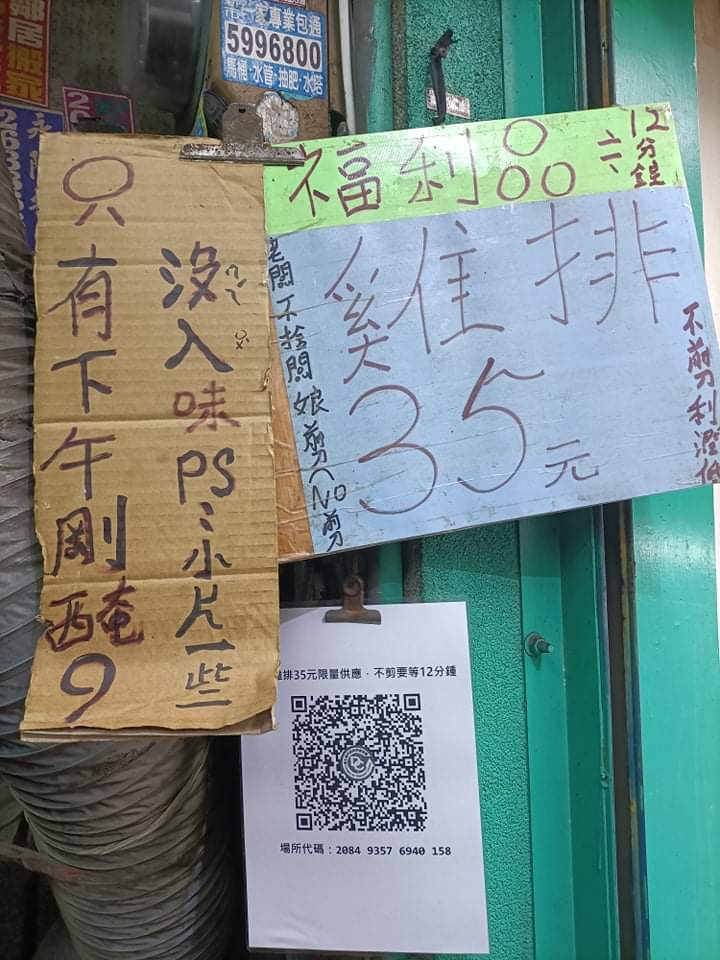 家專業包通
5996800
馬桶·水管·抽肥·水塔
只有下午剛醃9
沒入味PS:小片一些
福利品
12分鐘
雞排
35元
老闆不捨闆娘剪(NO剪
不剪利潤低
排35元限量供應．不剪要等12分鐘
場所代碼：2084 9357 6940 158